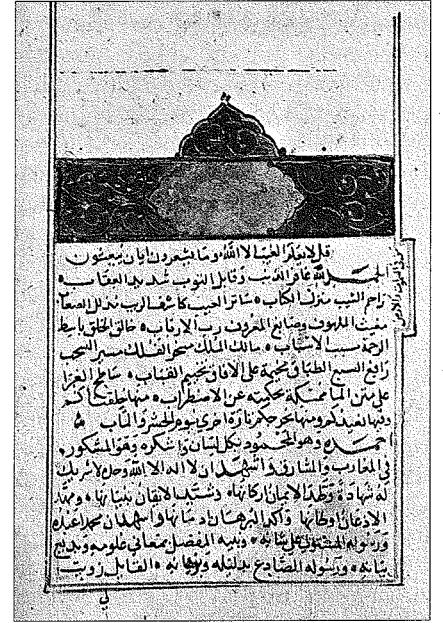 قل لا يعلم الغيب الا الله وما يشعرون ايان يبعثون
الحمد لله غافر الذنب وقابل التوب شديد العقاب
راحم الشيب منزل الكتاب ساتر العيب كاشف الريب مذلل الصعاب
مغيث الملهوف وصانع المعروف رب الارباب خالق الخلق باسط
مسبب الاسباب مالك الملك مسخر الفلك مسير السحب
رافع السبع الطباق مخيمة على الافاق تخييم القباب ساطح الغبرا
على متن الما ممسكة بحكمته عن الاضطراب منها خلقناكم
وفيها نعيدكم ومنها نخرجكم تارة اخرى يوم الحشر والماب
احمده وهو المحمود بكل لسان واشكره وهو المشكور
في المغارب والمشارق واشهد ان لا اله الا الله وحده لا شريك
له شهادة وطد الايمان اركانها وشيد الاتقان بنيانها ومهد
الاذعان اوطانها واكد البرهان واشهد ان محمدا عبده
ورسوله المشتمل على ونبيه المفضل بمعاني علومه وبديع
بيانه ورسوله الصادع بدليله وبرهانه القايل زويت
لي